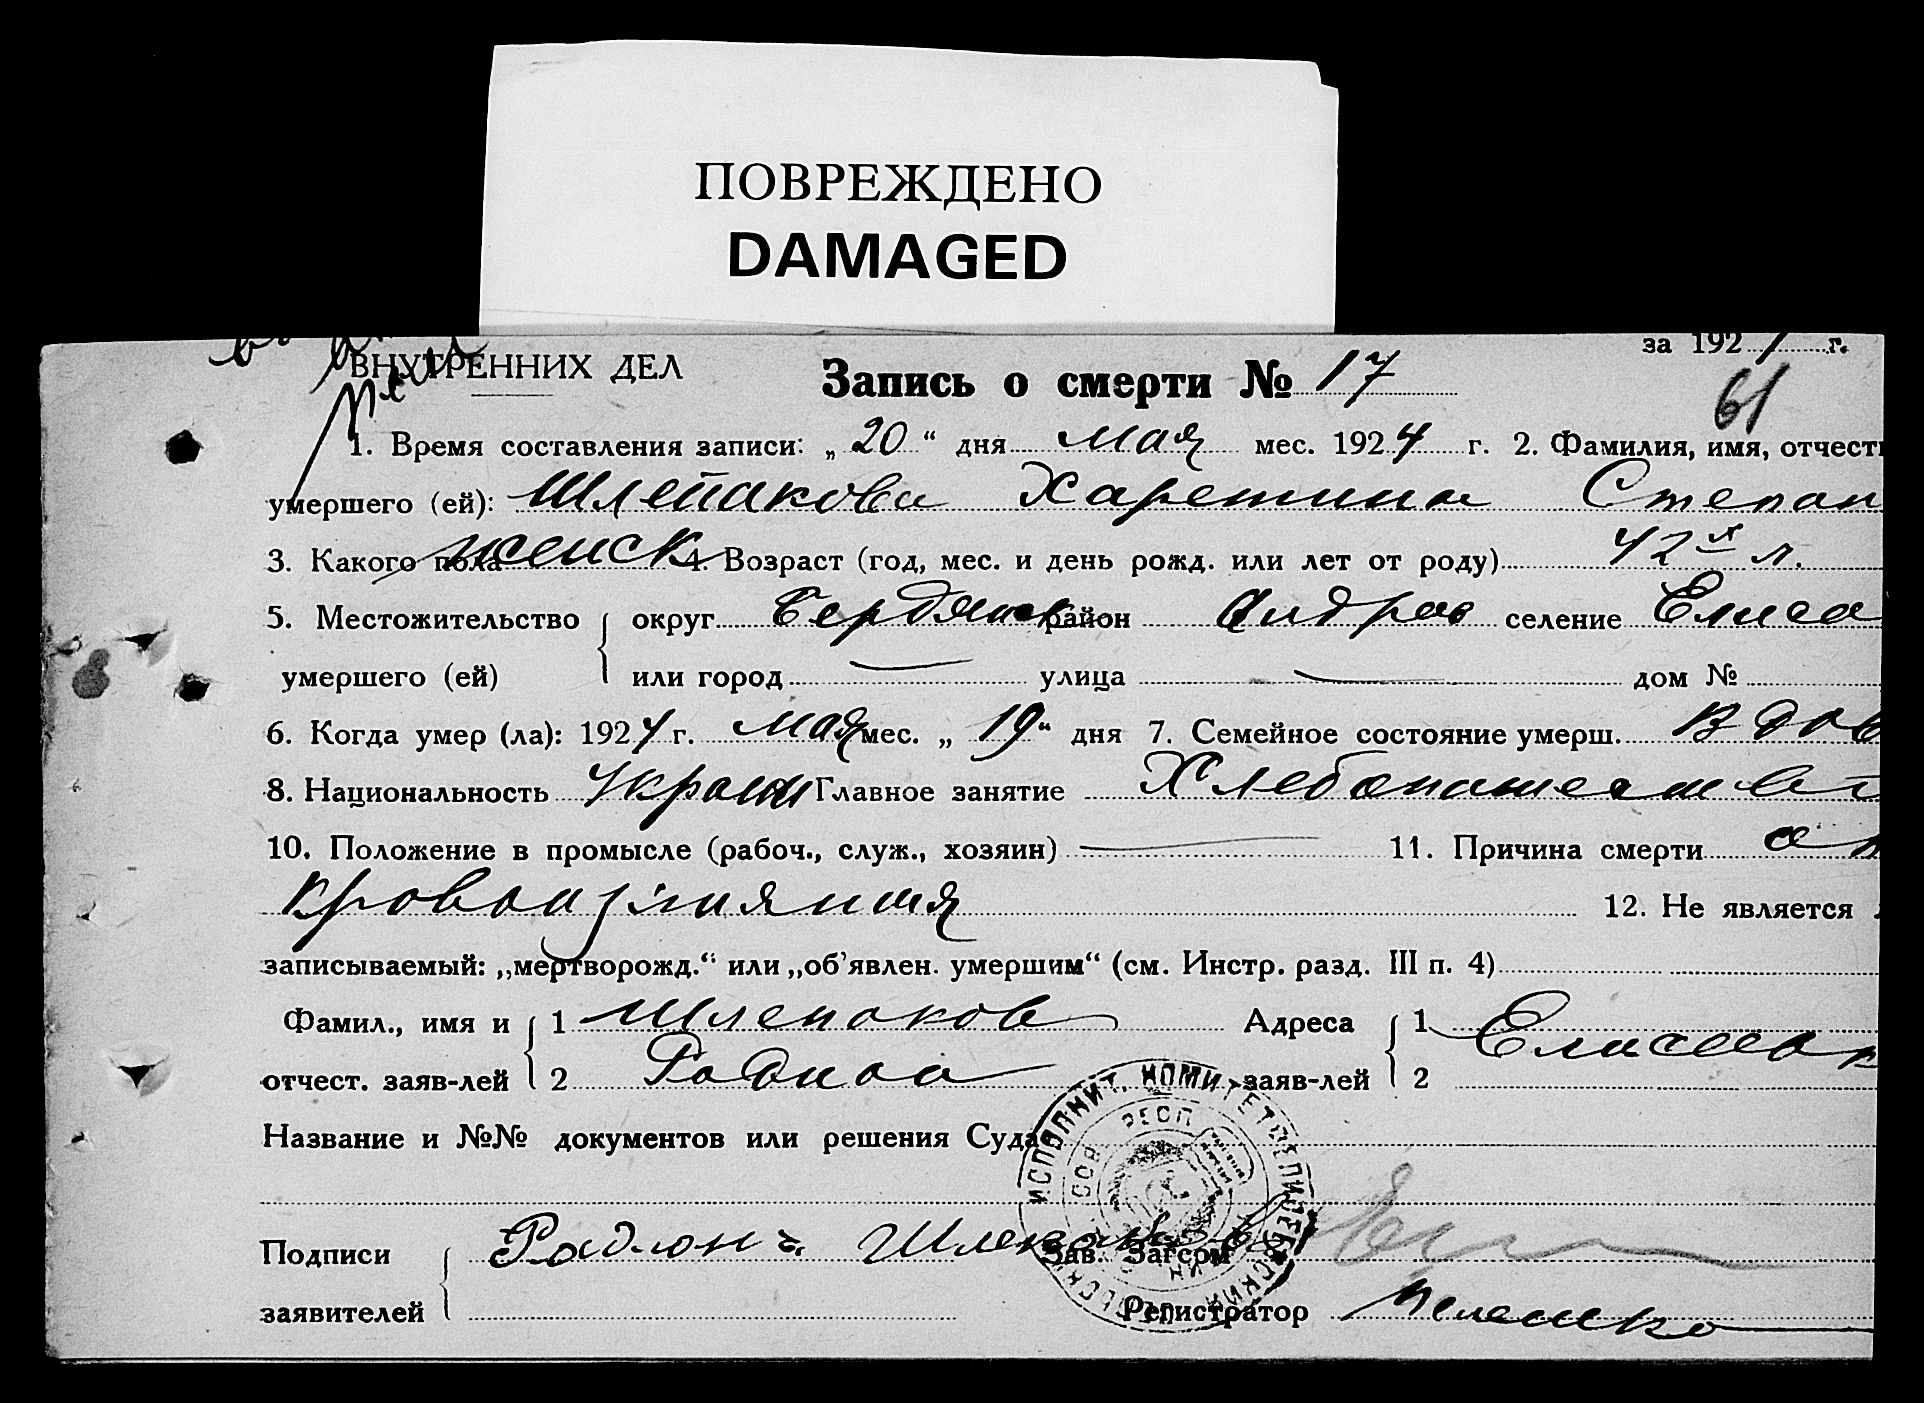 ПОВРЕЖДЕНО
DAMAGED
за 192 г.
ВНУТРЕННИХ ДЕЛ
Запись о смерти № 17
61
1. Время составления записи: „ 20 “ дня мая мес. 1924 г. 2. Фамилия, имя, отчест
умершего (ей): Шлепакова Харетина Степан
3. Какого пола женск 4. Возраст (год, мес. и день рожд. или лет от роду) 42 л.
5. Местожительство округ Бердянск район Андров селение Елиса
умершего (ей) или город — улица — дом №
6. Когда умер (ла): 1924 г. мая мес. „ 19 “ дня 7. Семейное состояние умерш. вдов
8. Национальность Украин Главное занятие Хлебопашеств
10. Положение в промысле (рабоч., служ., хозяин) — 11. Причина смерти от
кровоизлияния 12. Не является
записываемый: „мертворожд.“ или „об’явлен. умершим“ (см. Инстр. разд. III п. 4)
Фамил., имя и 1 Шлепаков Адреса 1
отчест. заяв-лей 2 Родион заяв-лей 2
Название и №№ документов или решения Суда
ИСПОЛНИТ. КОМИТЕТ
РЕСП
Подписи Родион Шлепаков Зав. Загсом
заявителей Регистратор